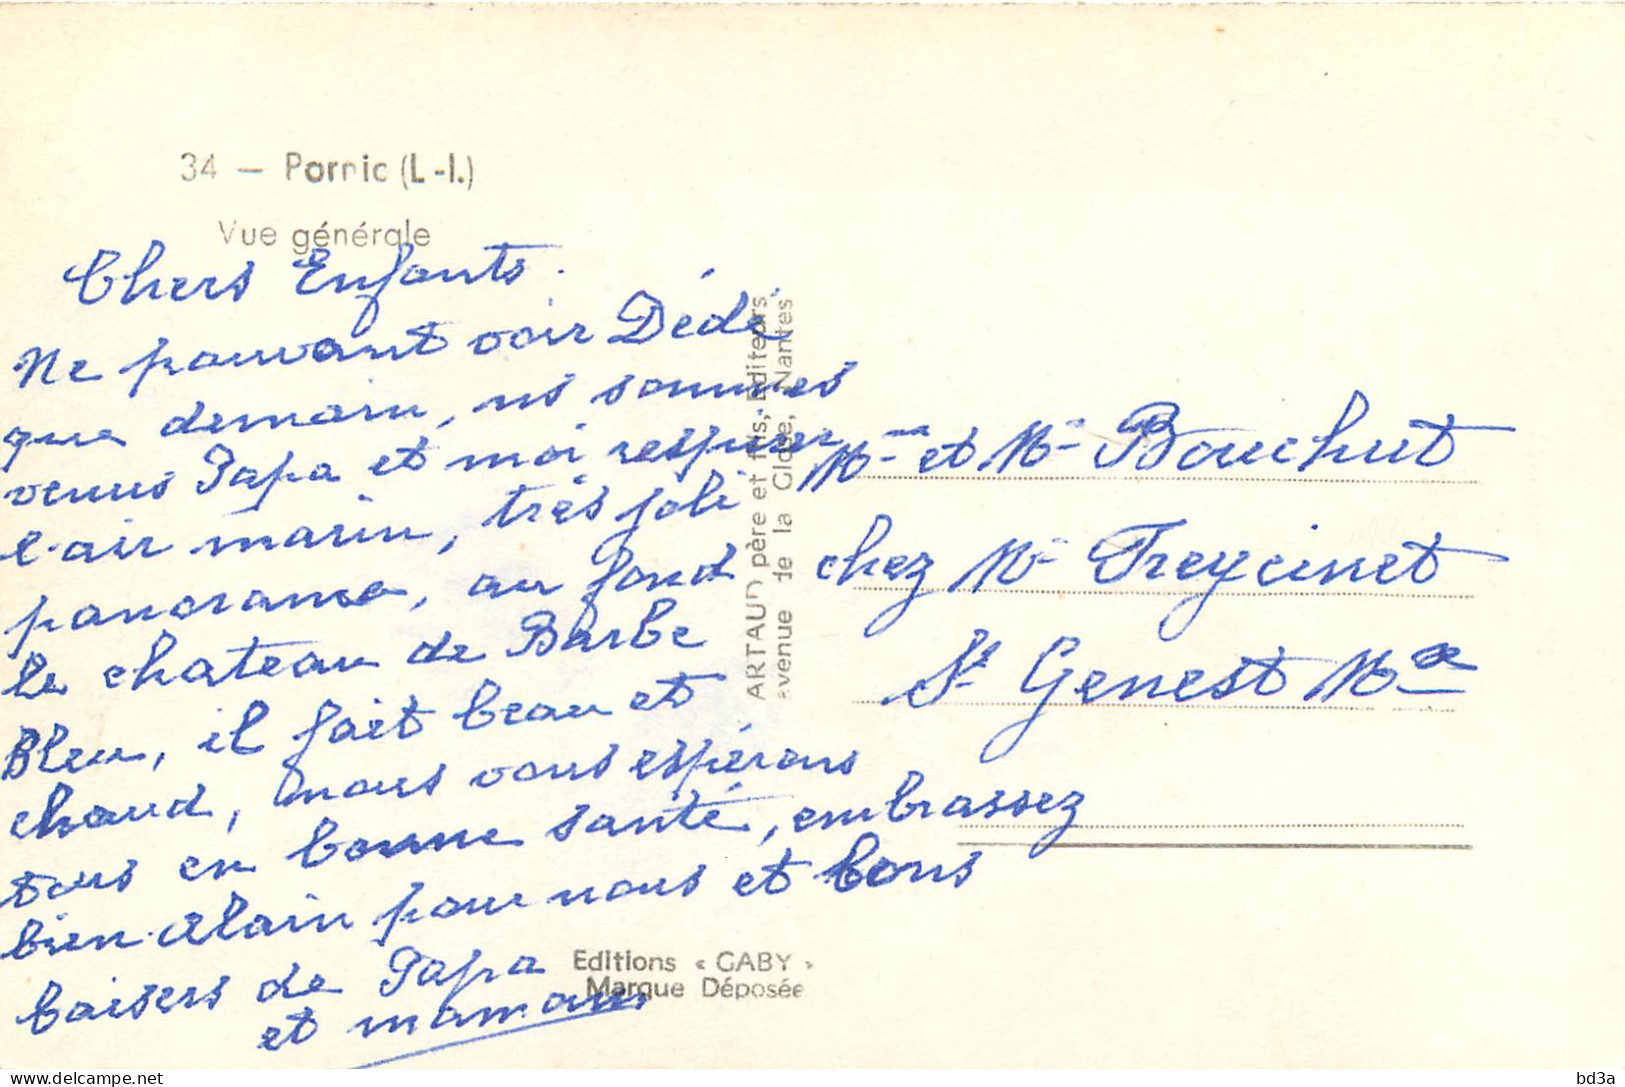 34 — Pornic (L-I.)
Vue générale
Chers Enfants.
Ne pouvant voir Dédé
que demain, ns sommes
venus Papa et moi respirer
l'air marin, très joli
panorama, au fond
le chateau de Barbe
Bleu, il fait beau et
chaud, nous vous espérons
tous en bonne santé, embrassez
bien Alain pour nous et bons
baisers de Papa
et maman
ARTAUD père et fils, Editeurs
avenue de la Gloire, Nantes
Editions « GABY »
Marque Déposée
Mme et Mr Bouchut
chez Mr Freycinet
St Genest Mx
delcampe.net
bd3a